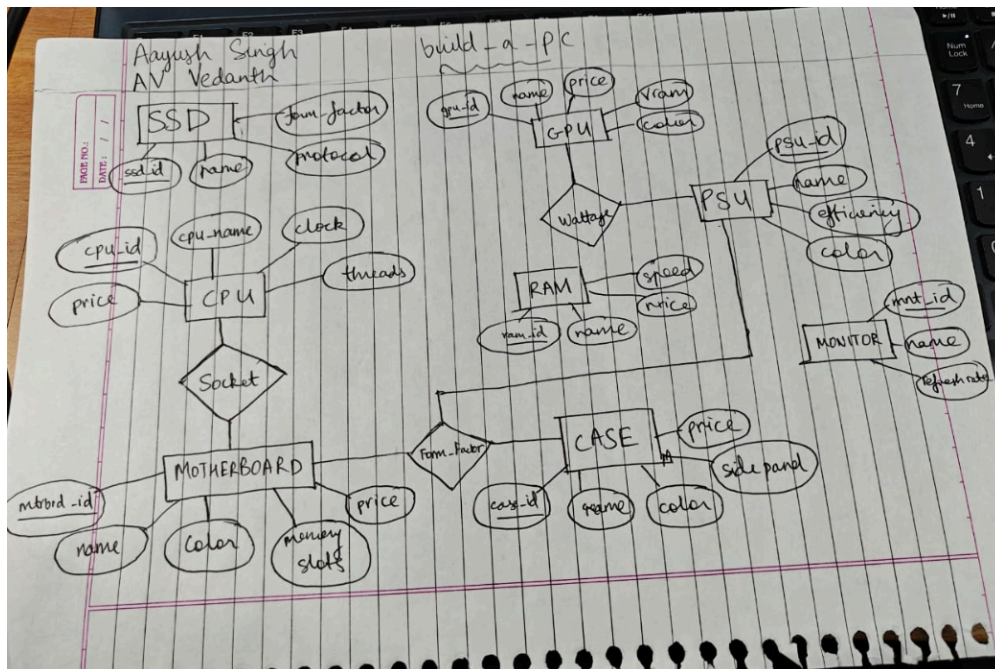 Aayush Singh
AV Vedanth
build-a-PC
PAGE NO.:
DATE: / /
SSD
form-factor
protocol
ssd_id
name
gpu-id
name
price
vram
color
GPU
Wattage
PSU
psu_id
name
efficiency
color
cpu_id
cpu-name
clock
threads
price
CPU
RAM
speed
price
ram_id
name
MONITOR
mnt_id
name
refresh rate
Socket
MOTHERBOARD
mtrbrd_id
name
color
memory
slots
price
Form_Factor
CASE
price
side panel
case_id
name
color
Num
Lock
7
Home
4
1